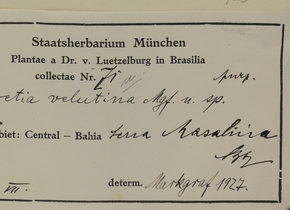 Staatsherbarium München
Plantae a Dr. v. Luetzelburg in Brasilia
collectae Nr. 71 purp.
etia velutina Mgf. n. sp.
biet: Central - Bahia Serra
VII.
determ. Markgraf 1927.